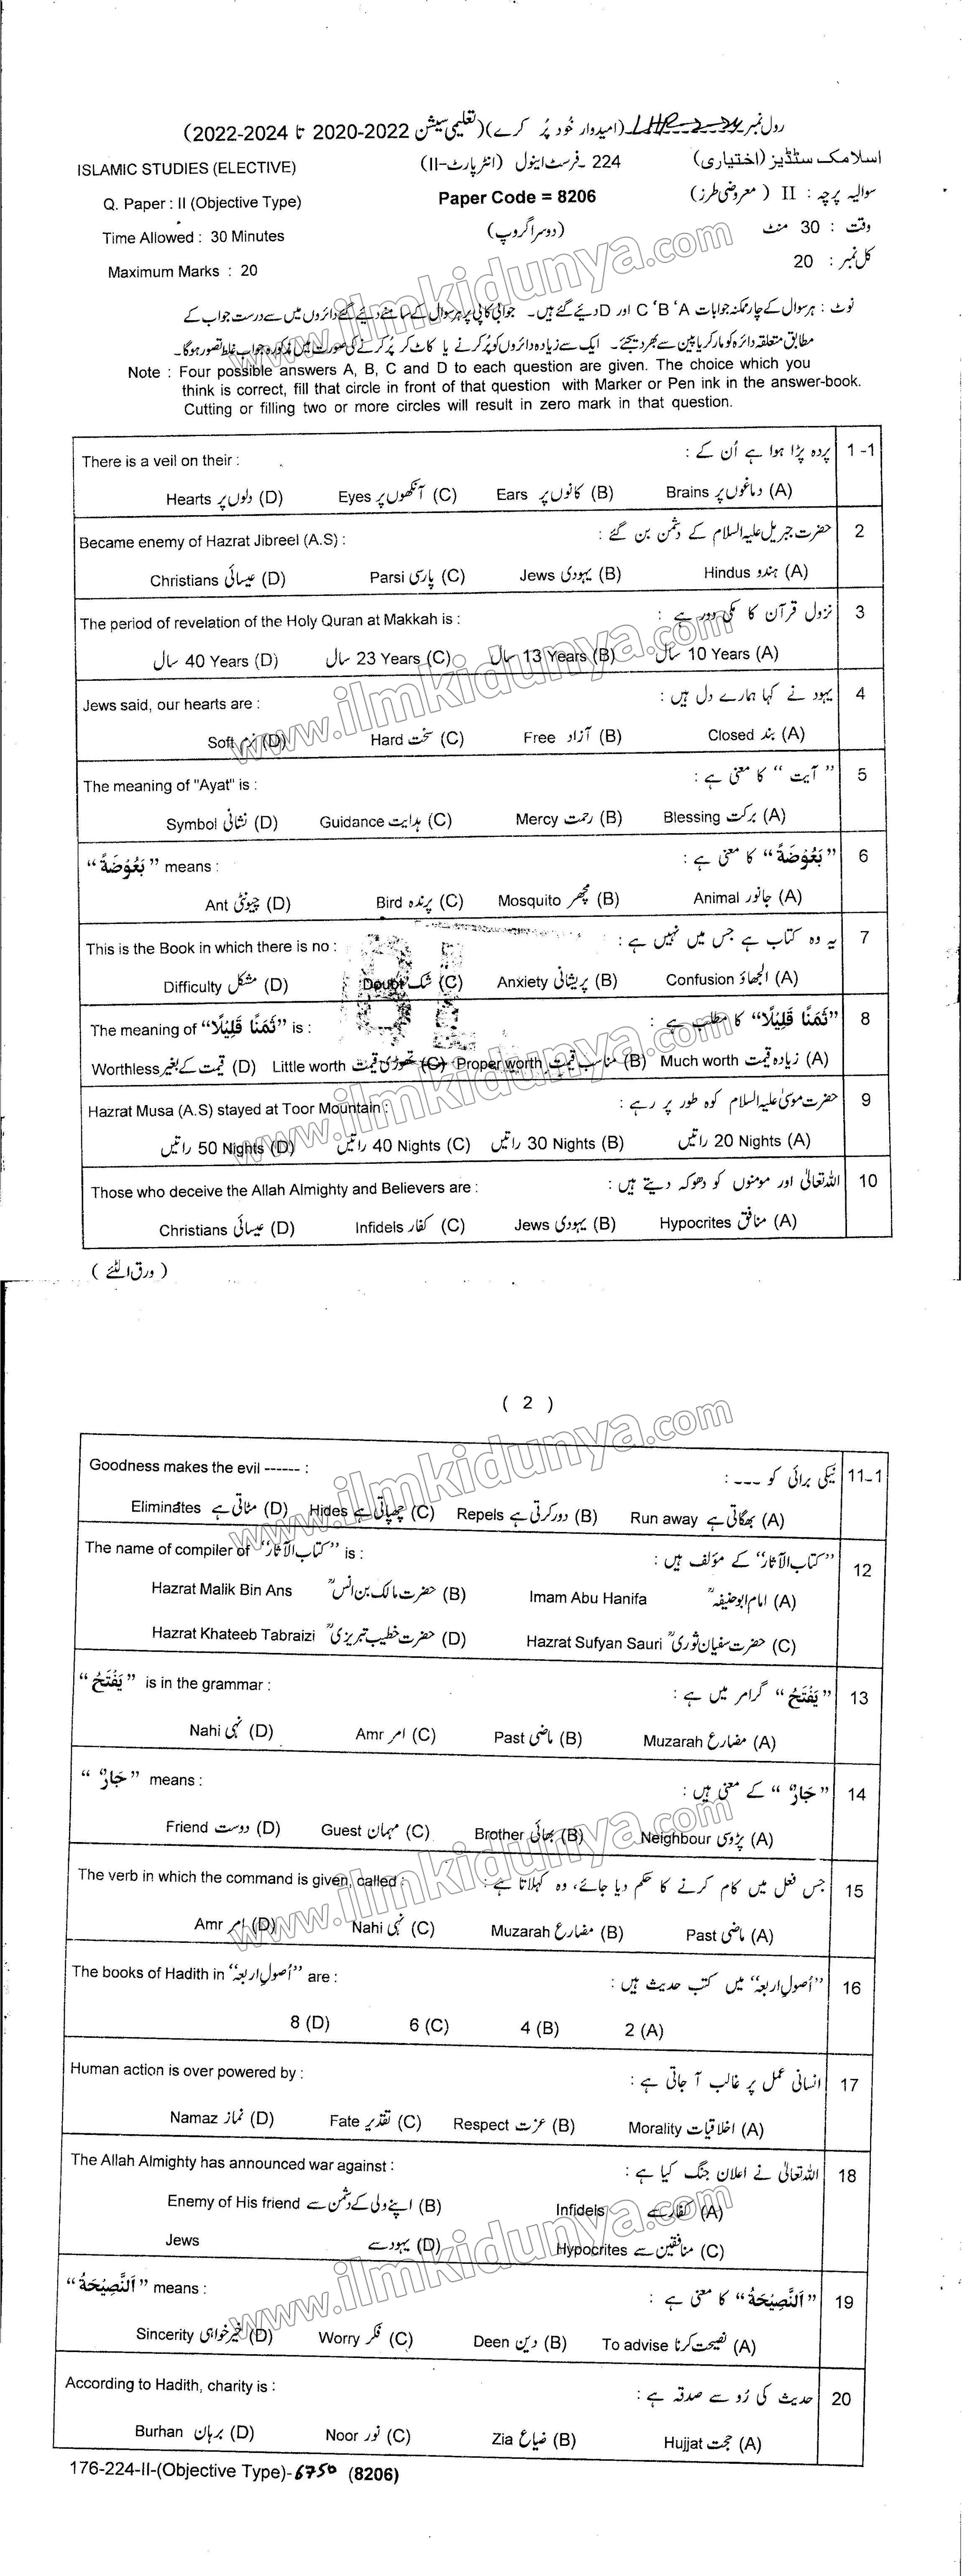 رول نمبر LHR-2-24 (امیدوار خُود پُر کرے) (تعلیمی سیشن 2022-2020 تا 2024-2022)
ISLAMIC STUDIES (ELECTIVE) 224 ۔فرسٹ اینول (انٹر پارٹ-II) اسلامک سٹڈیز (اختیاری)
Q. Paper : II (Objective Type) Paper Code = 8206 سوالیہ پرچہ : II (معروضی طرز)
Time Allowed : 30 Minutes (دوسرا گروپ) وقت : 30 منٹ
Maximum Marks : 20 کل نمبر : 20
نوٹ : ہر سوال کے چار ممکنہ جوابات A‘ B‘ C اور D دیئے گئے ہیں۔ جوابی کاپی پر ہر سوال کے سامنے دیئے گئے دائروں میں سے درست جواب کے
مطابق متعلقہ دائرہ کو مارکر یا پین سے بھر دیجئے۔ ایک سے زیادہ دائروں کو پُر کرنے یا کاٹ کر پُر کرنے کی صورت میں مذکورہ جواب غلط تصور ہوگا۔
Note : Four possible answers A, B, C and D to each question are given. The choice which you
think is correct, fill that circle in front of that question with Marker or Pen ink in the answer-book.
Cutting or filling two or more circles will result in zero mark in that question.
There is a veil on their : پردہ پڑا ہوا ہے اُن کے : 1 -1
Hearts دلوں پر (D) Eyes آنکھوں پر (C) Ears کانوں پر (B) Brains دماغوں پر (A)
Became enemy of Hazrat Jibreel (A.S) : حضرت جبریل علیہ السلام کے دشمن بن گئے : 2
Christians عیسائی (D) Parsi پارسی (C) Jews یہودی (B) Hindus ہندو (A)
The period of revelation of the Holy Quran at Makkah is : نزول قرآن کا مکی دور ہے : 3
40 Years سال (D) 23 Years سال (C) 13 Years سال (B) 10 Years سال (A)
Jews said, our hearts are : یہود نے کہا ہمارے دل ہیں : 4
Soft نرم (D) Hard سخت (C) Free آزاد (B) Closed بند (A)
The meaning of "Ayat" is : ”آیت“ کا معنی ہے : 5
Symbol نشانی (D) Guidance ہدایت (C) Mercy رحمت (B) Blessing برکت (A)
”بَعُوْضَةً“ means : ”بَعُوْضَةً“ کا معنی ہے : 6
Ant چیونٹی (D) Bird پرندہ (C) Mosquito مچھر (B) Animal جانور (A)
This is the Book in which there is no : یہ وہ کتاب ہے جس میں نہیں ہے : 7
Difficulty مشکل (D) Doubt شک (C) Anxiety پریشانی (B) Confusion الجھاؤ (A)
The meaning of ”ثَمَنًا قَلِيْلًا“ is : ”ثَمَنًا قَلِيْلًا“ کا مطلب ہے : 8
Worthless قیمت کے بغیر (D) Little worth تھوڑی قیمت (C) Proper worth مناسب قیمت (B) Much worth زیادہ قیمت (A)
Hazrat Musa (A.S) stayed at Toor Mountain : حضرت موسیٰ علیہ السلام کوہ طور پر رہے : 9
50 Nights راتیں (D) 40 Nights راتیں (C) 30 Nights راتیں (B) 20 Nights راتیں (A)
Those who deceive the Allah Almighty and Believers are : اللہ تعالیٰ اور مومنوں کو دھوکہ دیتے ہیں : 10
Christians عیسائی (D) Infidels کفار (C) Jews یہودی (B) Hypocrites منافق (A)
(ورق الٹئے)
( 2 )
Goodness makes the evil ------ : نیکی برائی کو --- : 11-1
Eliminates مٹاتی ہے (D) Hides چھپاتی ہے (C) Repels دور کرتی ہے (B) Run away بھگاتی ہے (A)
The name of compiler of ”کتاب الآثار“ is : ”کتاب الآثار“ کے مؤلف ہیں : 12
Hazrat Malik Bin Ans حضرت مالک بن انسؒ (B) Imam Abu Hanifa امام ابو حنیفہؒ (A)
Hazrat Khateeb Tabraizi حضرت خطیب تبریزیؒ (D) Hazrat Sufyan Sauri حضرت سفیان ثوریؒ (C)
”يَفْتَحُ“ is in the grammar : ”يَفْتَحُ“ گرامر میں ہے : 13
Nahi نہی (D) Amr امر (C) Past ماضی (B) Muzarah مضارع (A)
”جَارٌ“ means : ”جَارٌ“ کے معنی ہیں : 14
Friend دوست (D) Guest مہمان (C) Brother بھائی (B) Neighbour پڑوسی (A)
The verb in which the command is given, called : جس فعل میں کام کرنے کا حکم دیا جائے، وہ کہلاتا ہے : 15
Amr امر (D) Nahi نہی (C) Muzarah مضارع (B) Past ماضی (A)
The books of Hadith in ”اُصول اربعہ“ are : ”اُصول اربعہ“ میں کتب حدیث ہیں : 16
8 (D) 6 (C) 4 (B) 2 (A)
Human action is over powered by : انسانی عمل پر غالب آ جاتی ہے : 17
Namaz نماز (D) Fate تقدیر (C) Respect عزت (B) Morality اخلاقیات (A)
The Allah Almighty has announced war against : اللہ تعالیٰ نے اعلان جنگ کیا ہے : 18
Enemy of His friend اپنے ولی کے دشمن سے (B) Infidels کفار سے (A)
Jews یہود سے (D) Hypocrites منافقین سے (C)
”اَلنَّصِيْحَةُ“ means : ”اَلنَّصِيْحَةُ“ کا معنی ہے : 19
Sincerity خیر خواہی (D) Worry فکر (C) Deen دین (B) To advise نصیحت کرنا (A)
According to Hadith, charity is : حدیث کی رُو سے صدقہ ہے : 20
Burhan برہان (D) Noor نور (C) Zia ضیاع (B) Hujjat حجت (A)
176-224-II-(Objective Type)-6750 (8206)
www.ilmkidunya.com
www.ilmkidunya.com
www.ilmkidunya.com
www.ilmkidunya.com
www.ilmkidunya.com
www.ilmkidunya.com